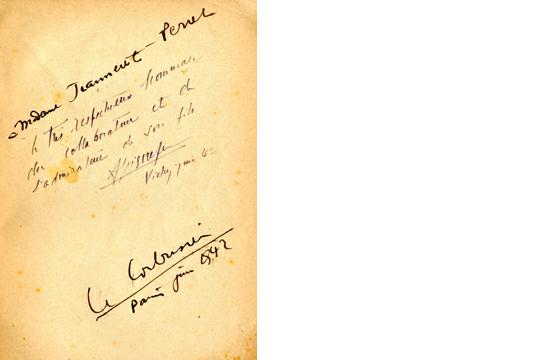 Madame Jeanneret - Perret
le très respectueux hommage
du collaborateur et de
l'admirateur de son fils
Vichy juin 42
Le Corbusier
Paris juin 1942